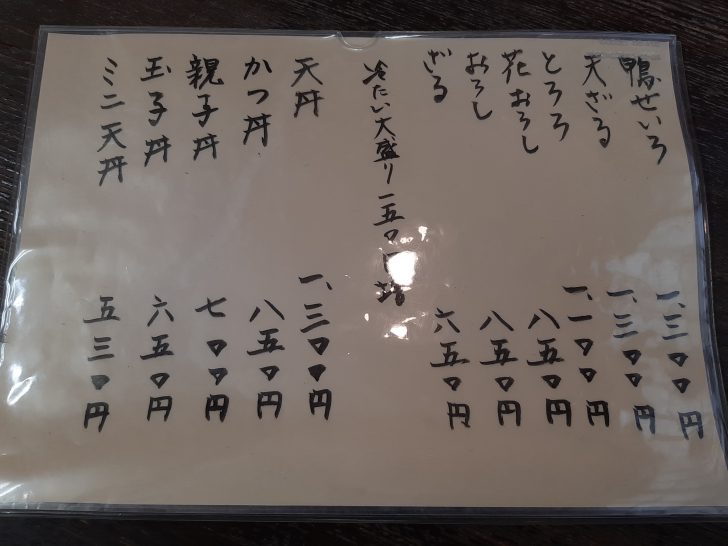 鴨せいろ 一、三〇〇円
天ざる 一、三〇〇円
とろろ 一、一〇〇円
花おろし 八五〇円
おろし 八五〇円
ざる 六五〇円
冷たい大盛り一五〇円増
天丼 一、三〇〇円
かつ丼 八五〇円
親子丼 七〇〇円
玉子丼 六五〇円
ミニ天丼 五三〇円